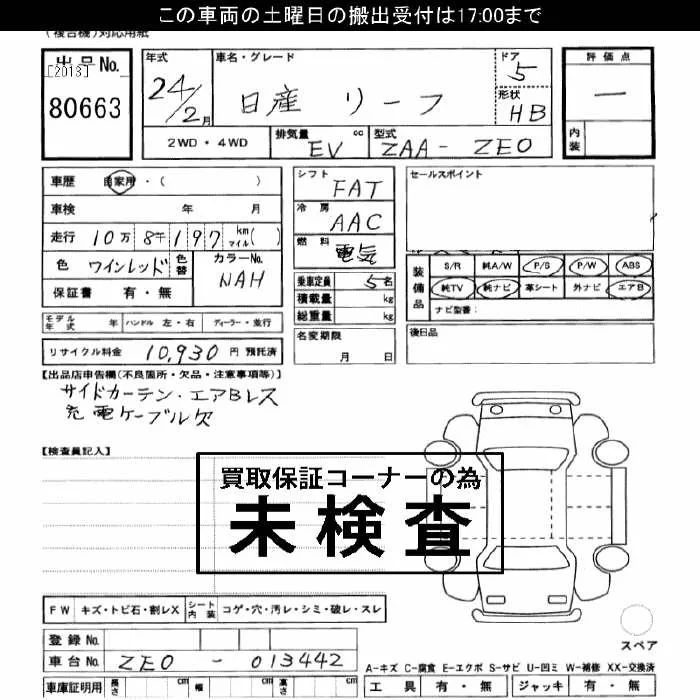 この車両の土曜日の搬出受付は17:00まで
(複合機)対応用紙
出品No.
[2013]
80663
年式
24/2月
車名・グレード
日産 リーフ
ドア
5
形状
HB
評価点
—
内装
2WD・4WD
排気量 cc
EV
型式
ZAA-ZE0
車歴 自家用・( )
車検 年 月
走行 10万 8千 197 km マイル( )
色 ワインレッド 色替
カラーNo.
NAH
保証書 有・無
シフト
FAT
冷房
AAC
燃料
電気
乗車定員 5名
積載量 kg
総重量 kg
名変期限
月 日
セールスポイント
装備品
S/R 純A/W P/S P/W ABS
純TV 純ナビ 革シート 外ナビ エアB
ナビ型番:
後日品
モデル年式 年 ハンドル 左・右 ディーラー・並行
リサイクル料金 10,930 円 預託済
【出品店申告欄(不良箇所・欠品・注意事項等)】
サイドカーテン・エアBレス
充電ケーブル欠
【検査員記入】
買取保証コーナーの為
未検査
FW キズ・トビ石・割レX シート内装 コゲ・穴・汚レ・シミ・破レ・スレ
登録No.
車台No. ZE0-013442
車庫証明用 長さ cm 幅 cm 高さ cm
スペア
A-キズ C-腐食 E-エクボ S-サビ U-凹ミ W-補修 XX-交換済
工具 有・無 ジャッキ 有・無